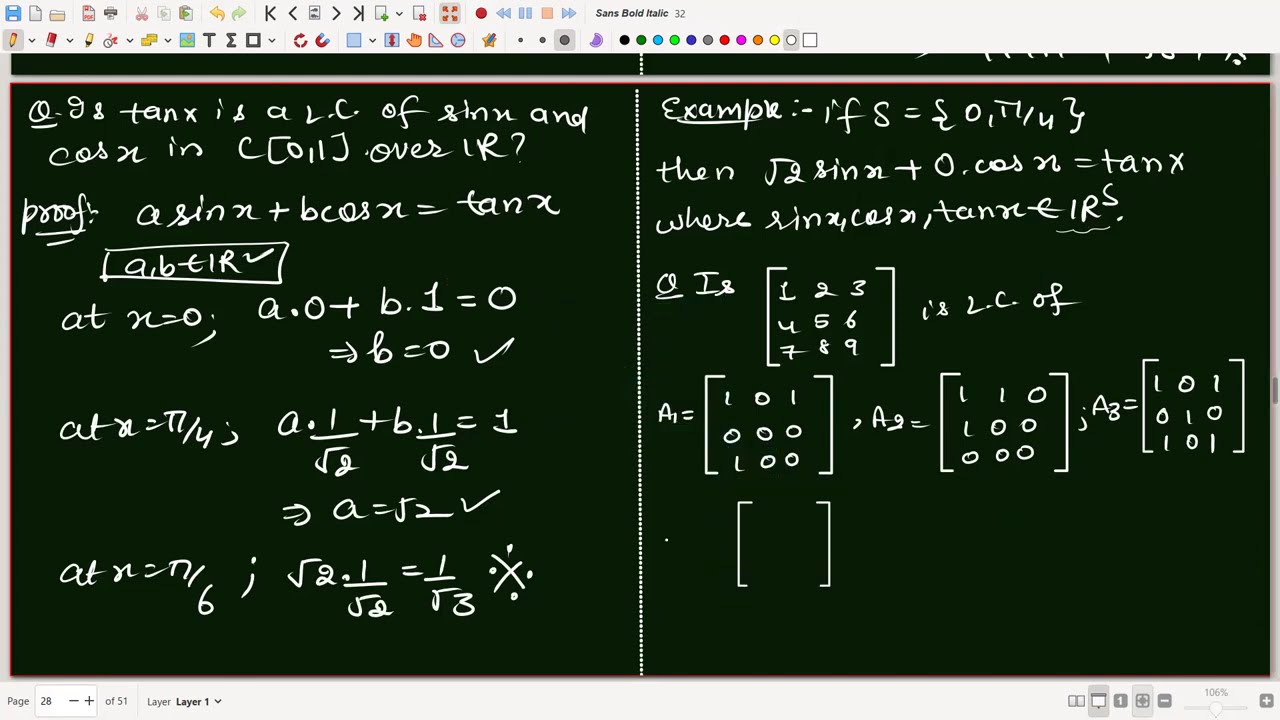 Sans Bold Italic 32
Q. Is tanx is a L.C. of sinx and
cosx in C[0,1] over IR?
proof:- a sinx + b cosx = tanx
a,b ∈ IR ✓
at x=0; a.0 + b.1 = 0
⇒ b=0 ✓
at x=π/4; a.1/√2 + b.1/√2 = 1
⇒ a=√2 ✓
at x=π/6; √2.1/√2 = 1/√3 ※
Example:- if S = {0, π/4}
then √2 sinx + 0.cosx = tanx
where sinx, cosx, tanx ∈ IR^S.
Q Is [1 2 3
4 5 6
7 8 9] is L.C. of
A1 = [1 0 1
0 0 0
1 0 0], A2 = [1 1 0
1 0 0
0 0 0]; A3 = [1 0 1
0 1 0
1 0 1]
[ ]
Page 28 of 51 Layer Layer 1 106%